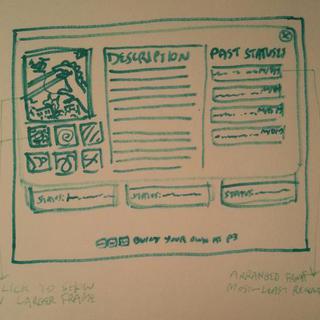 DESCRIPTION
PAST STATUSES
STATUS:
STATUS:
STATUS:
BUILD YOUR OWN AT
CLICK TO SHOW
LARGER FRAME
ARRANGED FROM
MOST-LEAST